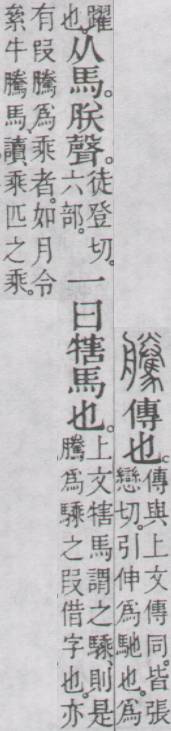 騰 傳也。傳與上文傳同。皆張戀切。引伸爲馳也。爲
躍也。从馬。朕聲。徒登切。六部。一曰犗馬也。上文犗馬謂之騬。則是騰爲騬之叚借字也。亦
有叚騰爲乘者。如月令絫牛騰馬。讀乘匹之乘。